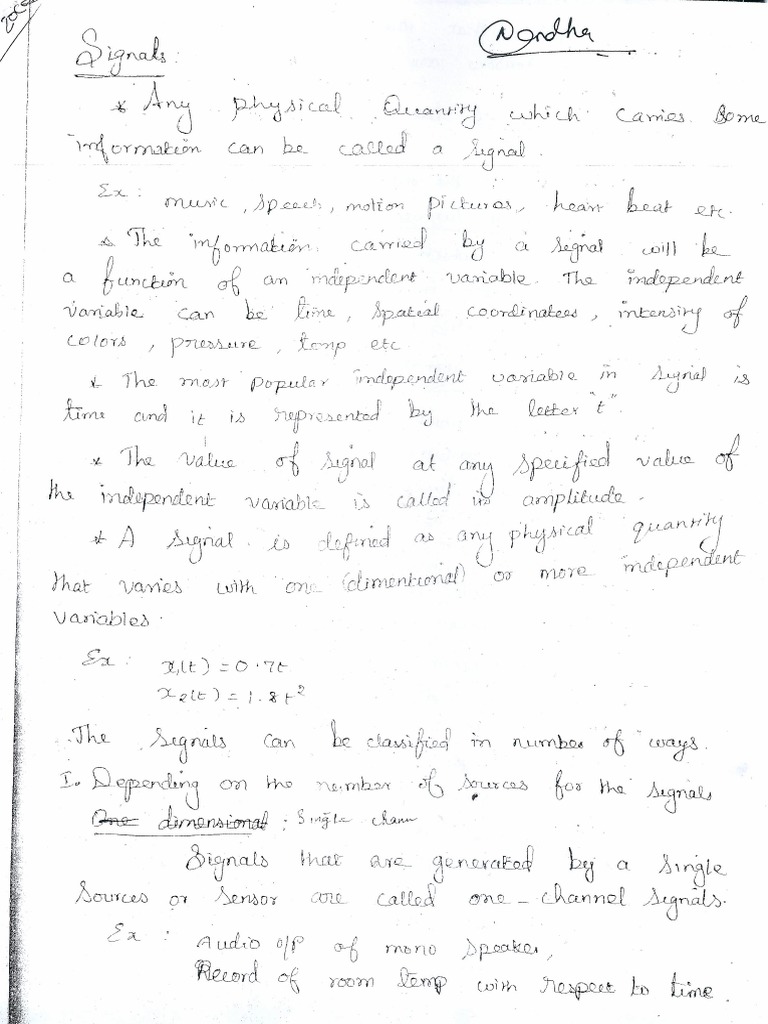 Nandha
Signals:
* Any physical Quantity which carries some
information can be called a signal.
Ex: music, speech, motion pictures, heart beat etc.
* The information carried by a signal will be
a function of an independent variable. The independent
variable can be time, spatial coordinates, intensity of
colors, pressure, temp etc
* The most popular independent variable in signal is
time and it is represented by the letter "t".
* The value of signal at any specified value of
the independent variable is called its amplitude.
* A signal is defined as any physical quantity
that varies with one (dimentional) or more independent
variables.
Ex: x1(t) = 0.7t
x2(t) = 1.8t²
The signals can be classified in number of ways.
I. Depending on the number of sources for the signals
One dimensional: Single chann
Signals that are generated by a single
sources or sensor are called one-channel signals.
Ex: Audio o/p of mono speaker,
Record of room temp with respect to time.